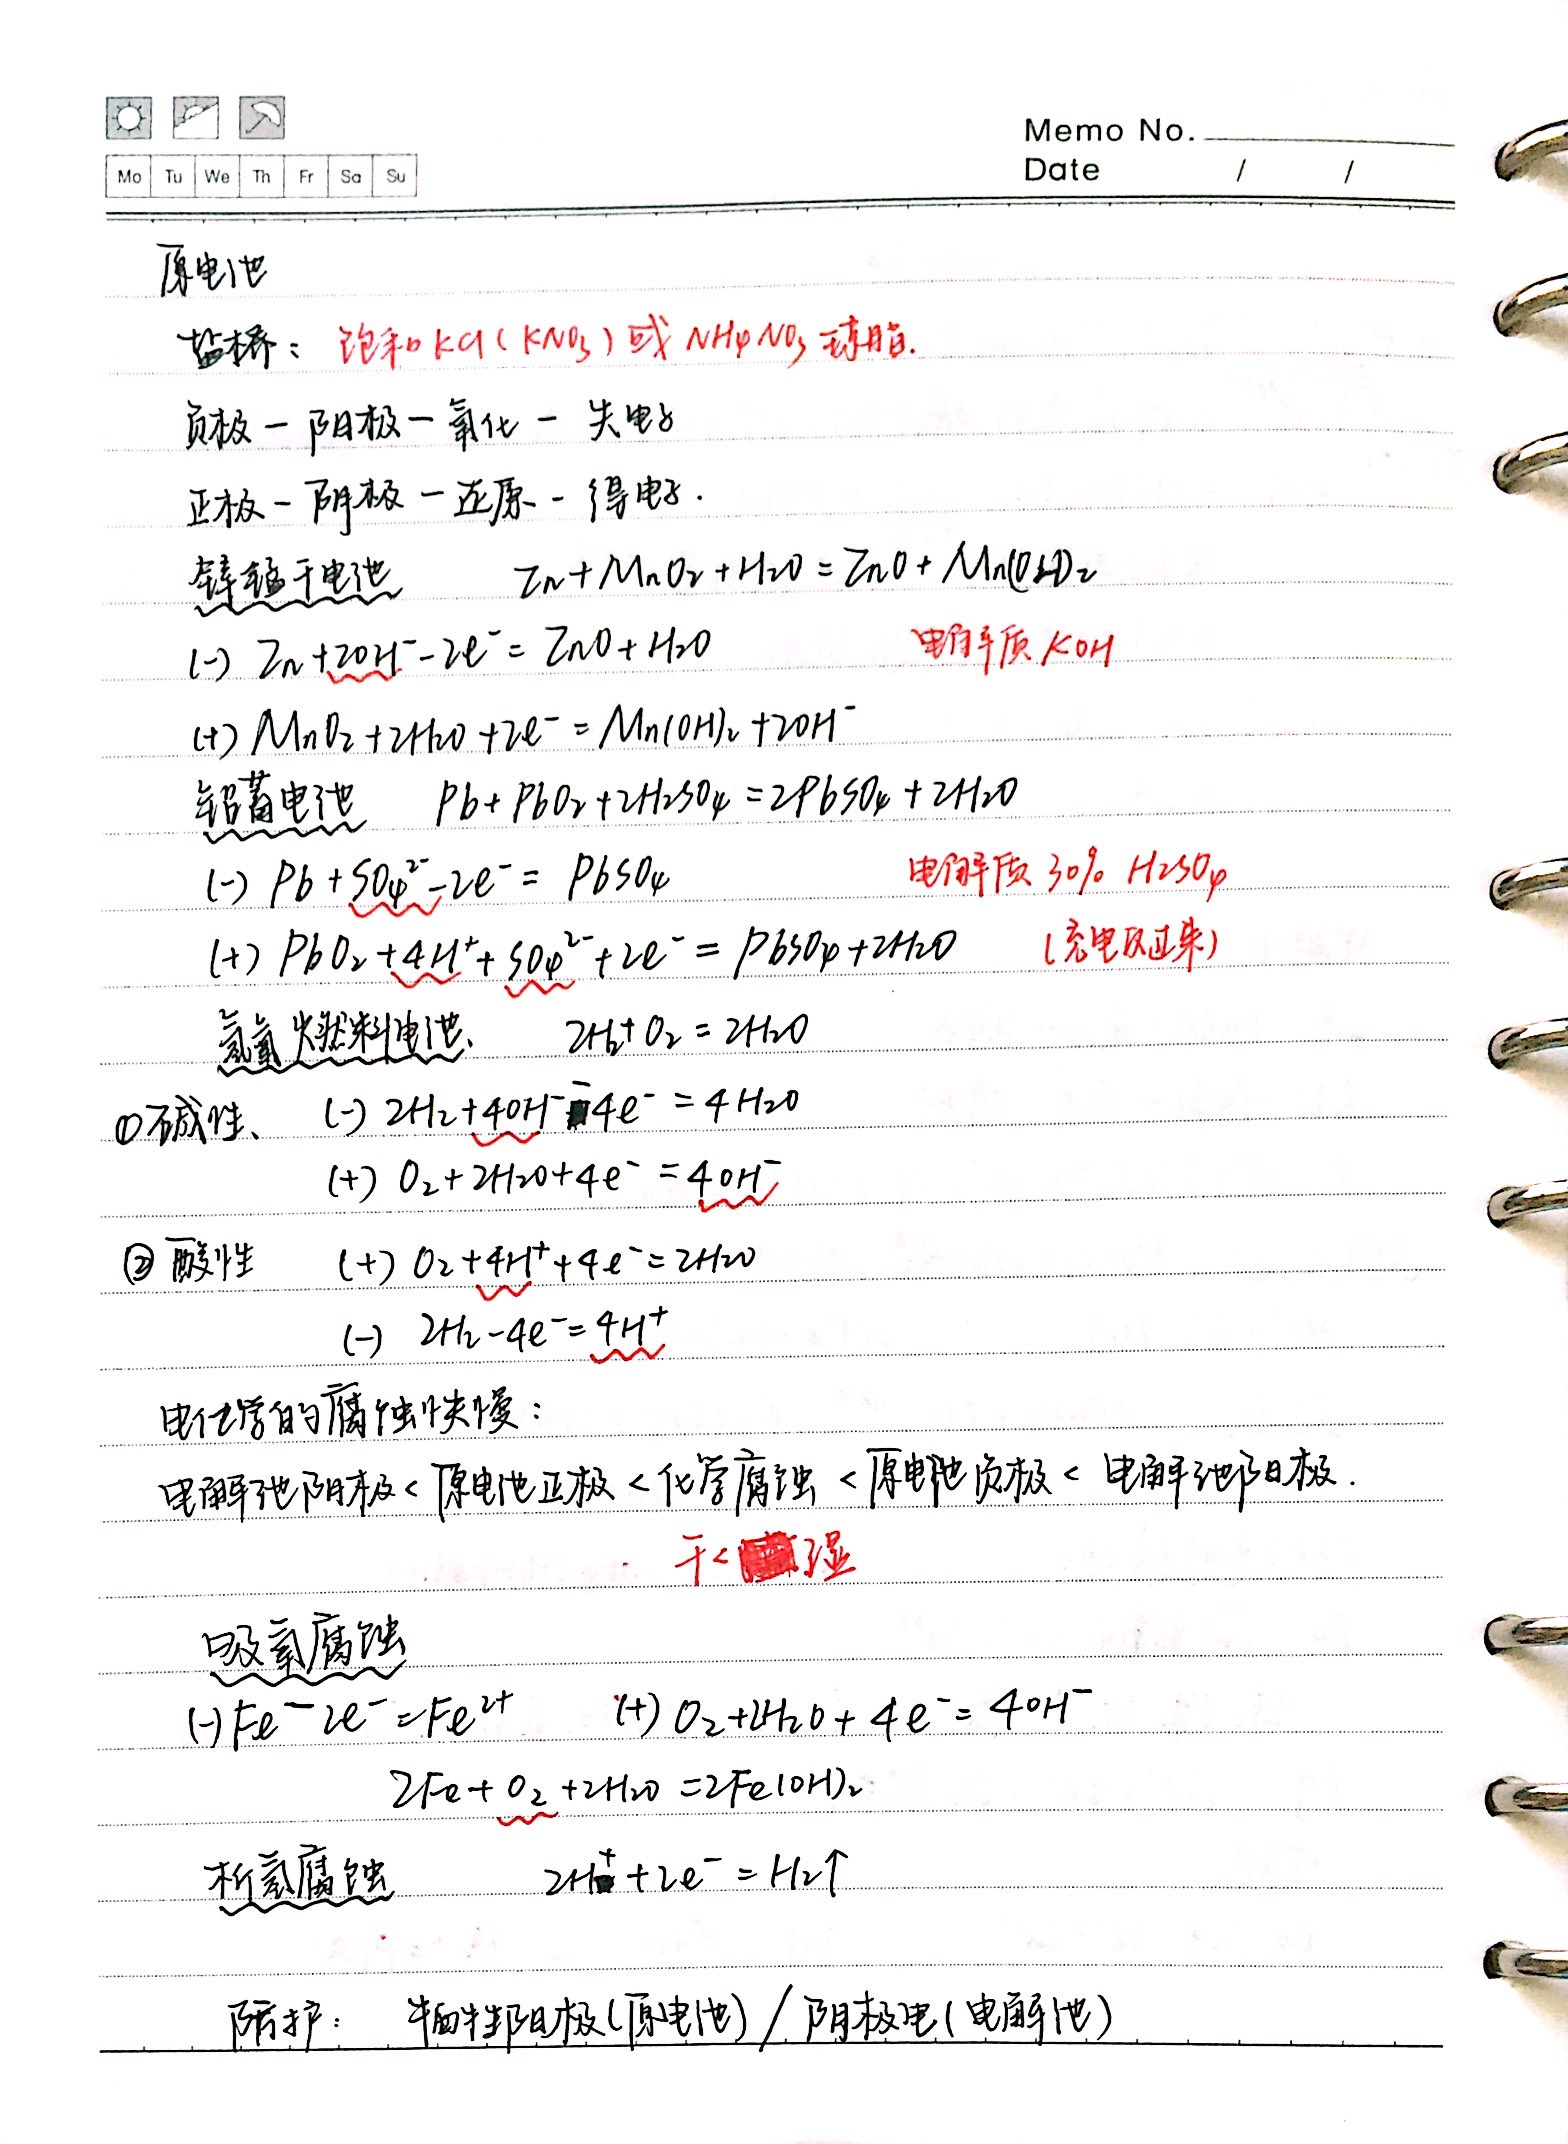 Memo No.
Mo Tu We Th Fr Sa Su
Date / /
原电池
盐桥：饱和KCl（KNO₃）或NH₄NO₃琼脂.
负极－阳极－氧化－失电子
正极－阴极－还原－得电子.
锌锰干电池 Zn+MnO₂+H₂O=ZnO+Mn(OH)₂
(-) Zn+2OH⁻-2e⁻=ZnO+H₂O 电解质KOH
(+) MnO₂+2H₂O+2e⁻=Mn(OH)₂+2OH⁻
铅蓄电池 Pb+PbO₂+2H₂SO₄=2PbSO₄+2H₂O
(-) Pb+SO₄²⁻-2e⁻=PbSO₄ 电解质 30% H₂SO₄
(+) PbO₂+4H⁺+SO₄²⁻+2e⁻=PbSO₄+2H₂O （充电反过来）
氢氧燃料电池、 2H₂+O₂=2H₂O
①碱性、 (-) 2H₂+4OH⁻-4e⁻=4H₂O
(+) O₂+2H₂O+4e⁻=4OH⁻
②酸性 (+) O₂+4H⁺+4e⁻=2H₂O
(-) 2H₂-4e⁻=4H⁺
电化学的腐蚀快慢：
电解池阴极<原电池正极<化学腐蚀<原电池负极<电解池阳极.
干<湿
吸氧腐蚀
(-) Fe-2e⁻=Fe²⁺ (+) O₂+2H₂O+4e⁻=4OH⁻
2Fe+O₂+2H₂O=2Fe(OH)₂
析氢腐蚀 2H⁺+2e⁻=H₂↑
防护：牺牲阳极(原电池)/阴极电(电解池)